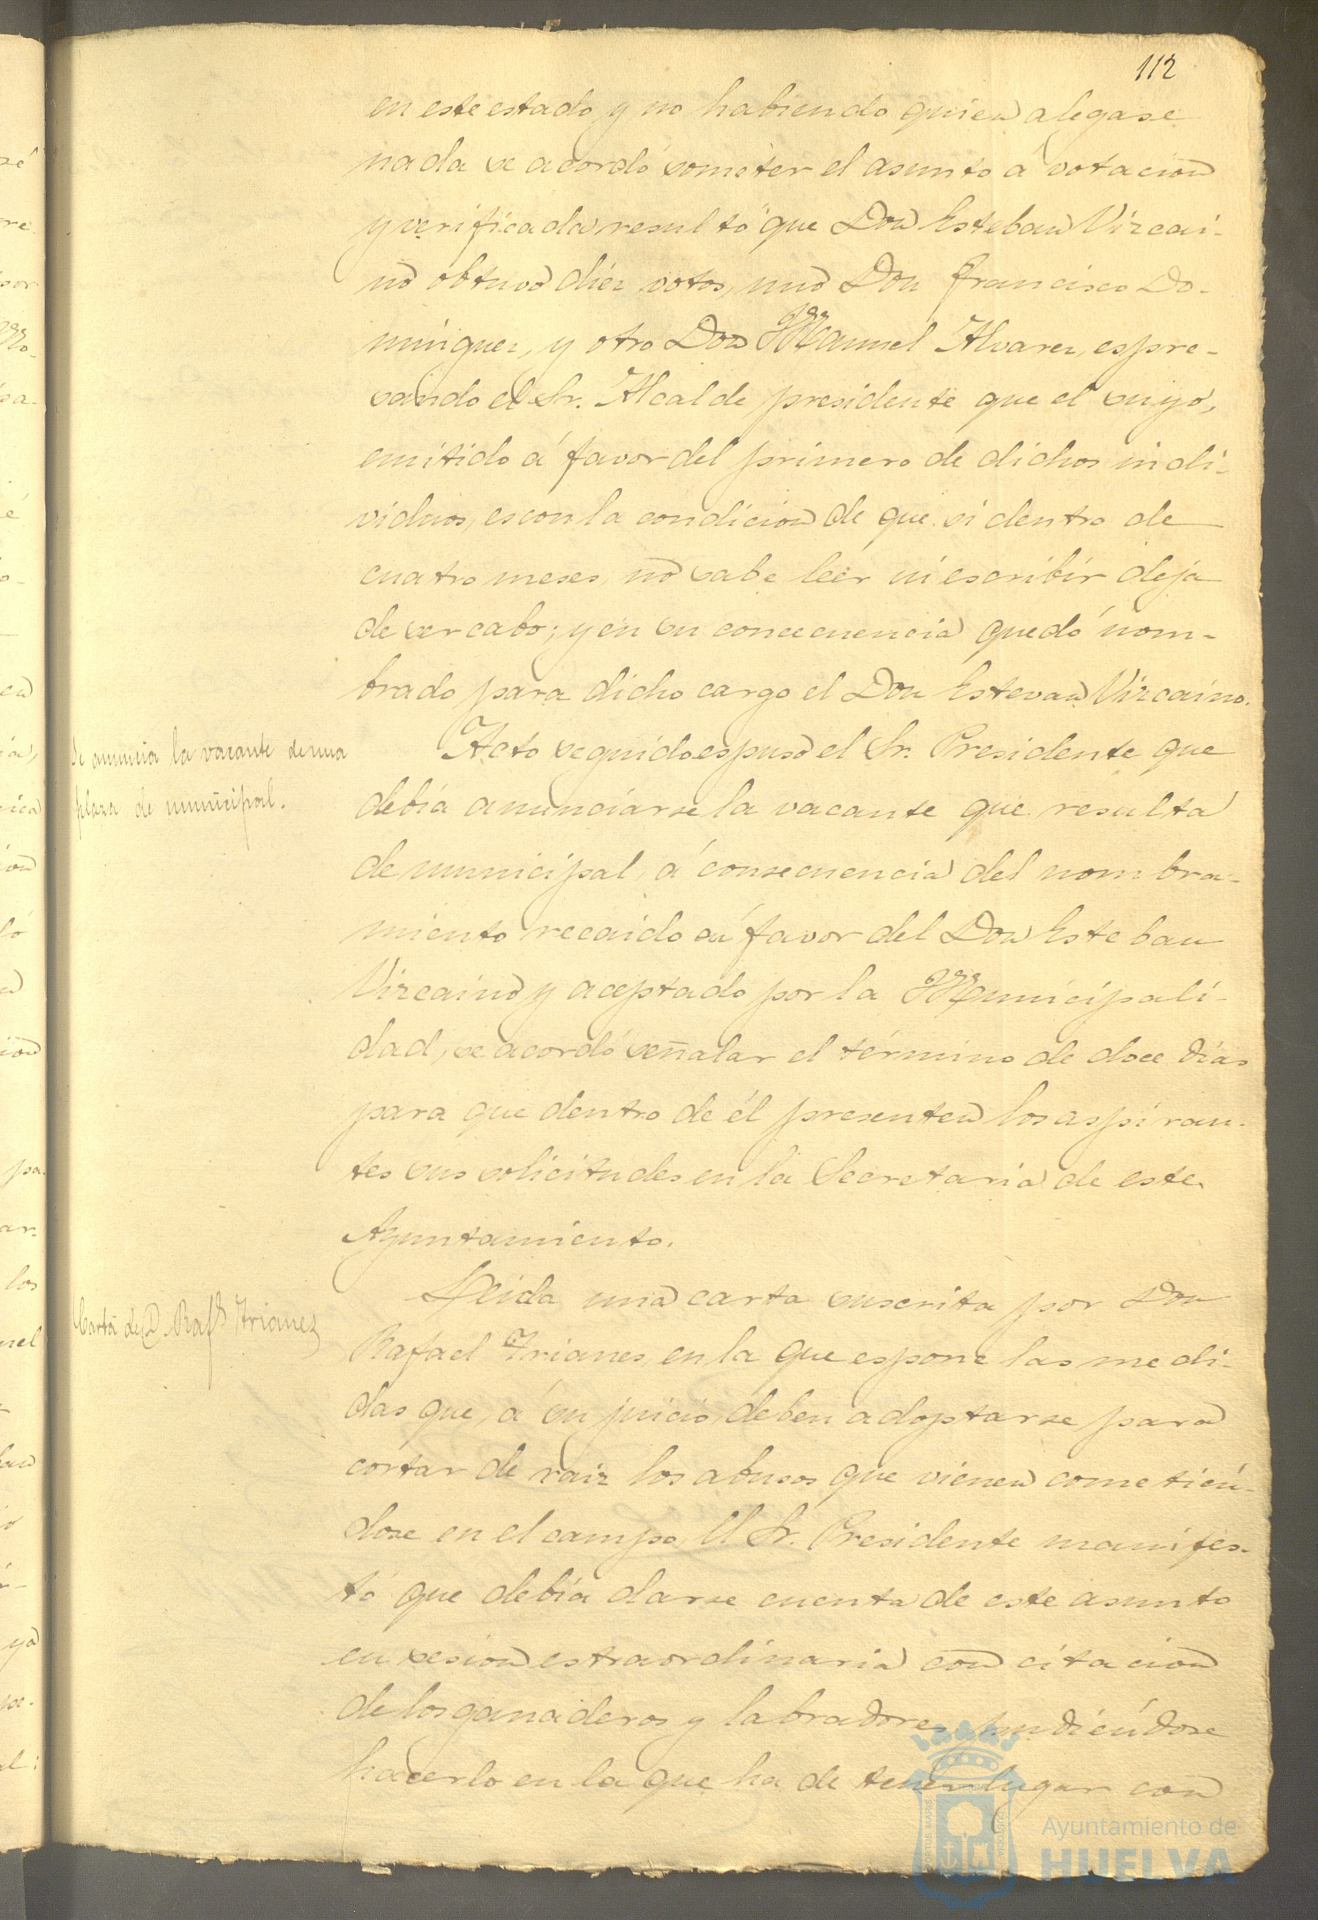 112
en este estado y no habiendo quien alegase
nada se acordó someter el asunto á votacion
y verificada resultó que Don Esteban Vizcai-
no obtuvo diez votos, uno Don Francisco Do-
minguez, y otro Don Manuel Alvarez, espre-
sando el Sr. Alcalde presidente que el suyo,
emitido á favor del primero de dichos indi-
viduos, es con la condicion de que si dentro de
cuatro meses no sabe leer ni escribir deja
de ser cabo; y en su consecuencia quedó nom-
brado para dicho cargo el Don Estevan Vizcaino.
Se anuncia la vacante de una
plaza de municipal.
Acto seguido espuso el Sr. Presidente que
debía anunciarse la vacante que resulta
de municipal, á consecuencia del nombra-
miento recaido en favor del Don Esteban
Vizcaino y aceptado por la Municipali-
dad, se acordó señalar el término de doce dias
para que dentro de él presenten los aspiran-
tes sus solicitudes en la Secretaria de este
Ayuntamiento.
Carta de D. Rafl Trianez
Leida una carta suscrita por Don
Rafael Trianes, en la que espone las medi-
das que, á su juicio, deben adoptarse para
cortar de raiz los abusos que vienen cometién-
dose en el campo. El Sr. Presidente manifes-
tó que debía darse cuenta de este asunto
en sesion estraordinaria con citacion
de los ganaderos y labradores, pudiéndose
hacerlo en la que ha de tener lugar con
Ayuntamiento de
HUELVA